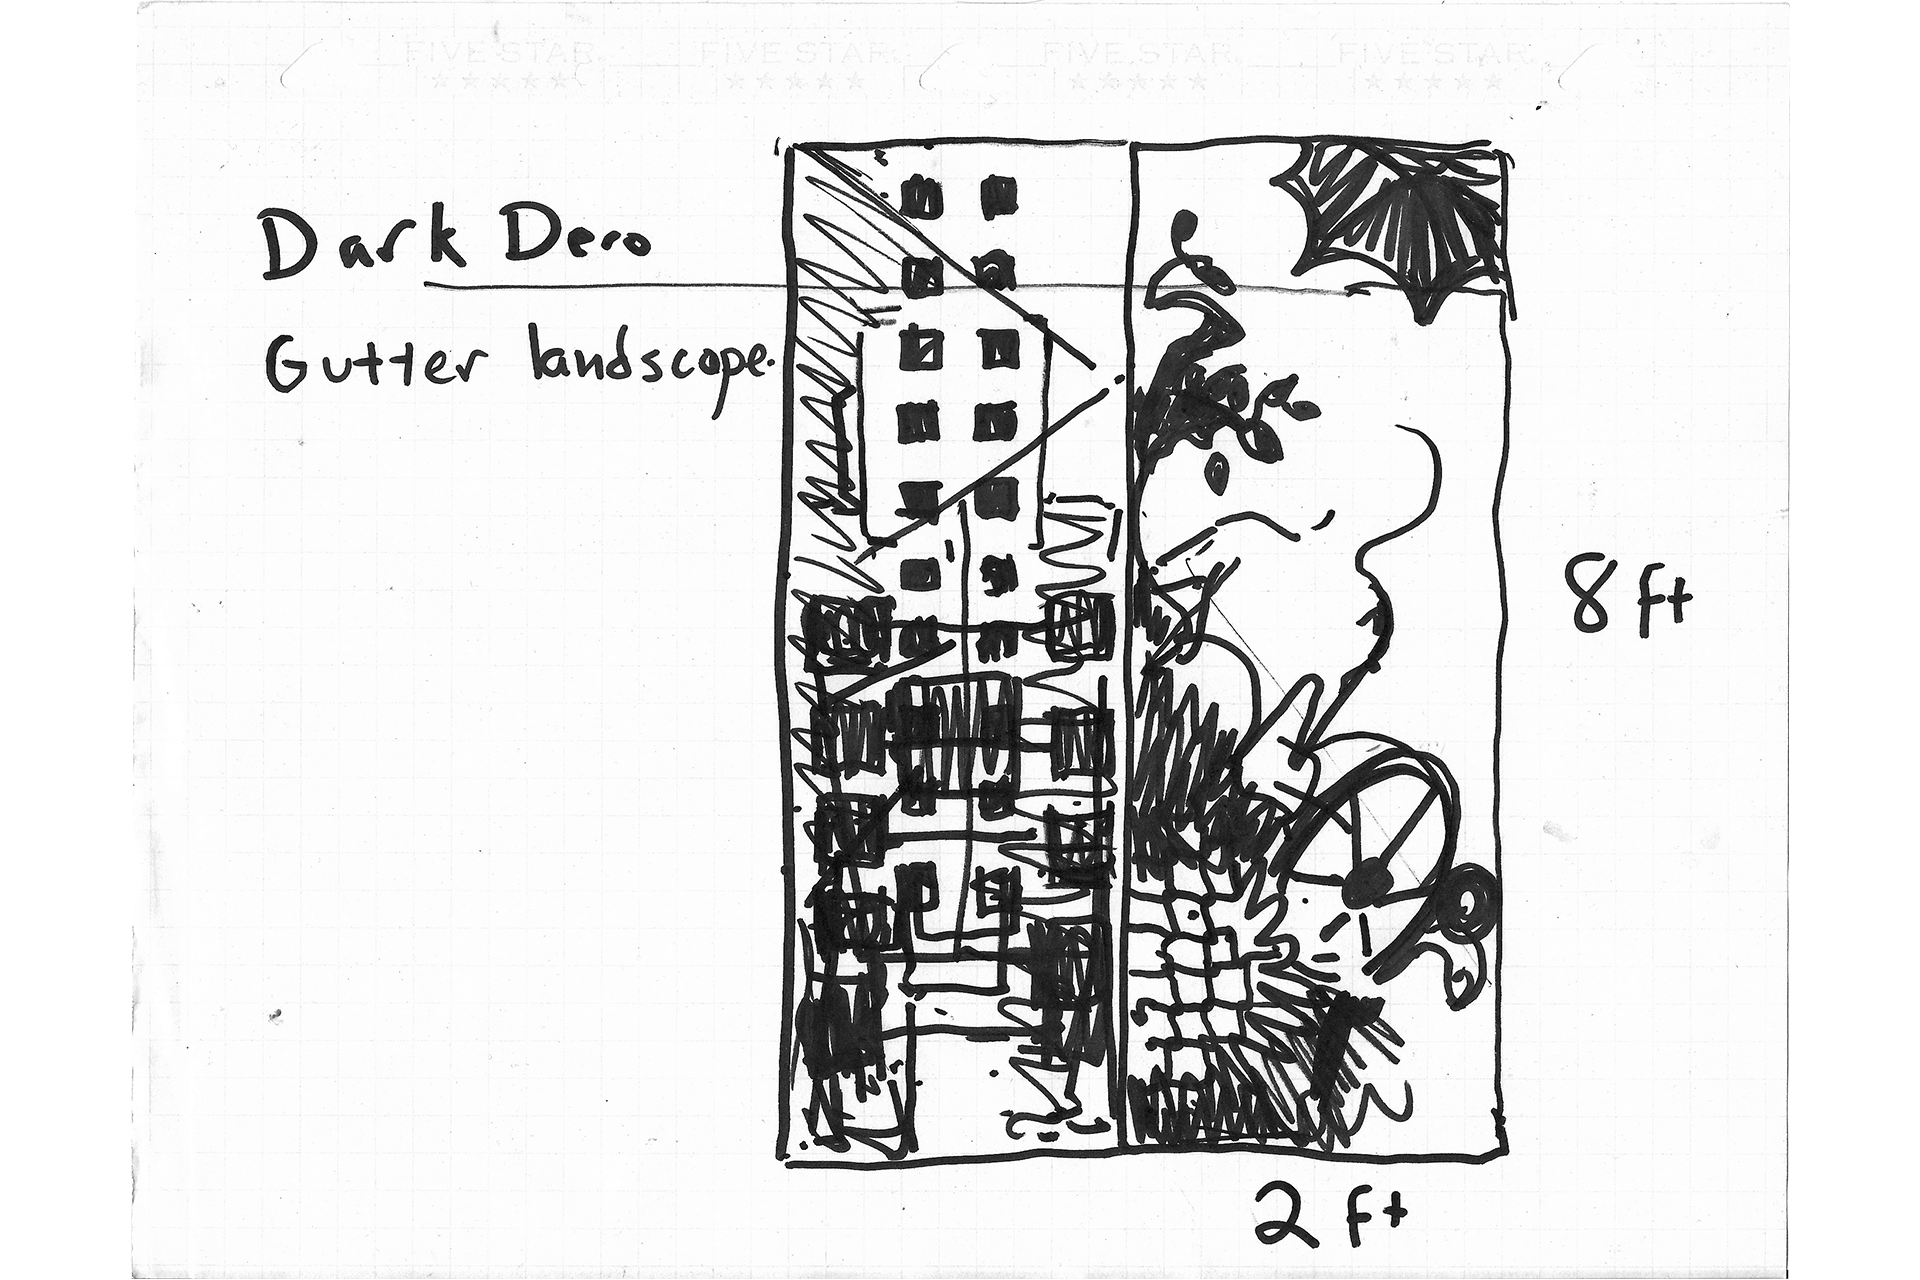 FIVE STAR FIVE STAR FIVE STAR FIVE STAR
Dark Deco
Gutter landscape.
8 ft
2 ft